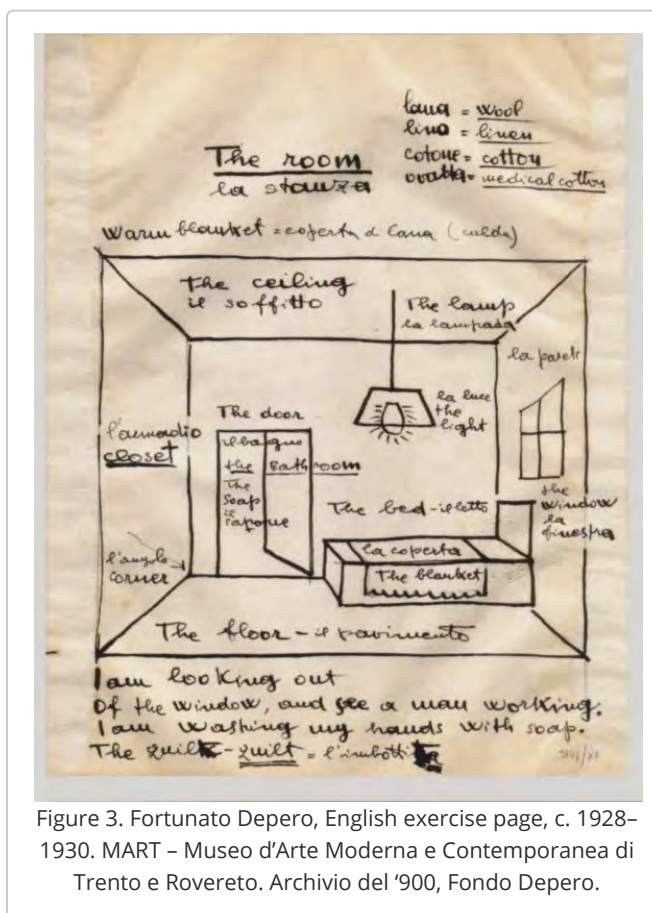 lana = wool
lino = linen
cotone = cotton
ovatta = medical cotton
The room
la stanza
Warm blanket = coperta di lana (calda)
the ceiling
il soffitto
The lamp
la lampada
la parete
la luce
the
light
The door
il bagno
the Bathroom
The
soap
il
sapone
l'armadio
closet
The bed - il letto
the
window
la
finestra
la coperta
The blanket
l'angolo
corner
The floor - il pavimento
I am looking out
Of the window, and see a man working.
I am washing my hands with soap.
The quilt - quilt = l'imbottita
Figure 3. Fortunato Depero, English exercise page, c. 1928–
1930. MART – Museo d'Arte Moderna e Contemporanea di
Trento e Rovereto. Archivio del '900, Fondo Depero.